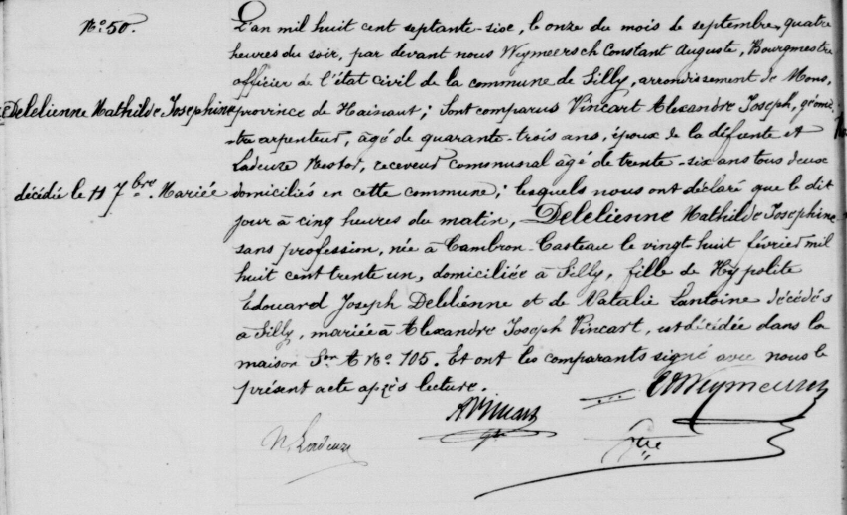 No: 50.
Delelienne Mathilde Josephine
décédée le 11 7bre. Mariée
L'an mil huit cent septante-six, le onze du mois de septembre, quatre
heures du soir, par devant nous Weymeersch Constant Auguste, Bourgmestre
officier de l'état civil de la commune de Silly, arrondissement de Mons,
province de Hainaut; Sont comparus Vincart Alexandre Joseph, géomè-
-tre arpenteur, âgé de quarante-trois ans, époux de la défunte et
Ladeuze Nestor, receveur communal âgé de trente-six ans tous deux
domiciliés en cette commune; lesquels nous ont déclaré que le dit
jour à cinq heures du matin, Delelienne Mathilde Josephine
sans profession, née à Cambron Casteau le vingt huit février mil
huit cent trente un, domiciliée à Silly, fille de Hypolite
Edouard Joseph Delelienne et de Natalie Lantoine décédés
à Silly, mariée à Alexandre Joseph Vincart, est décédée dans la
maison Son A No 105. Et ont les comparants signé avec nous le
présent acte après lecture.
CA Weymeersch
AVincart
N. Ladeuze